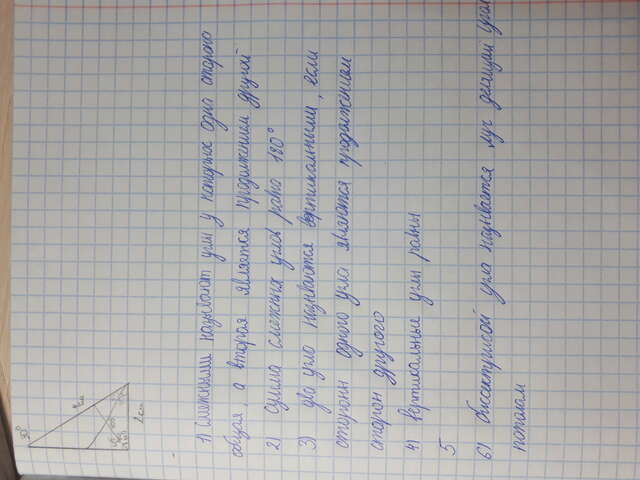 30°
4 см
2 см
1) Смежными называют углы у которых одна сторона
общая, а вторая является продолжением другой
2) Сумма смежных углов равна 180°
3) два угла называются вертикальными, если
стороны одного угла являются продолжением
сторон другого
4) вертикальные углы равны
5
6) биссектрисой угла называется луч делящий угол
пополам